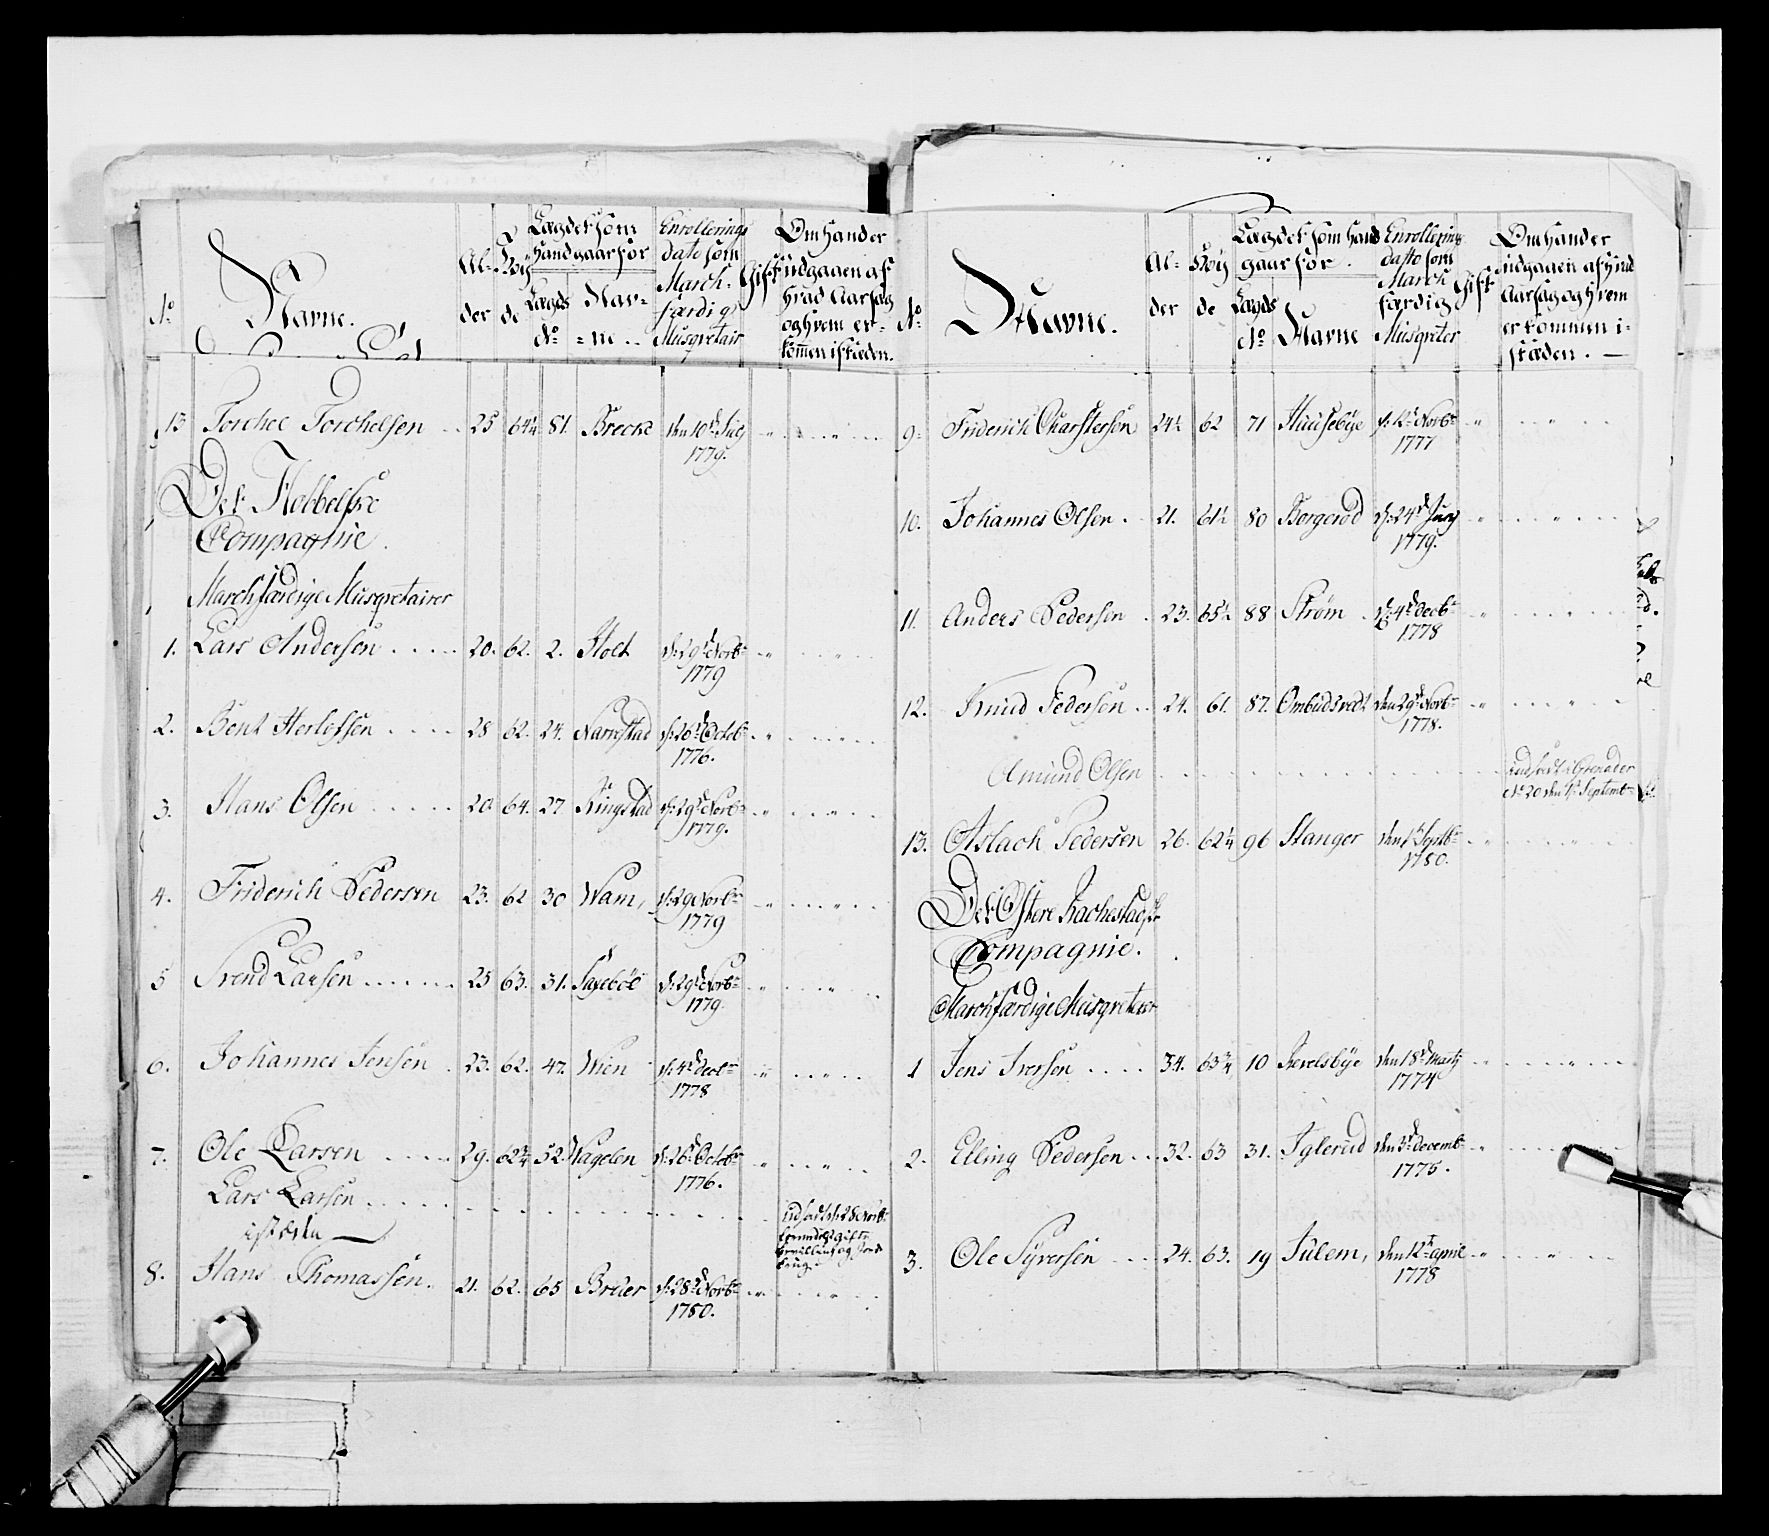 No
Navne.
Al-
der
Høy
de
Lægdet som
hand gaar for
Lægds
No
Nav-
ne..
Enrollerings
dato som
March-
færdig
Musqvetair
Gift
Om hand er
udgaaen af
hvad Aarsag
og hvem er-
kommen i stæden.
13 Torchel Torchelsen .. 25 64¼ 81. Brecke den 10de July
1779.
Det Hebbelske
Compagnie.
Marchfærdige Musqvetairer
1. Lars Andersen ..... 20. 62. 2. Holt d: 29de Novbr
1779
2. Bent Herlofsen .... 28 62. 24. Narrestad d: 26de Octobr
1776.
3. Hans Olsen ..... 20 64. 27. Ringstad d: 29de Novbr
1779.
4. Friderich Pedersen 23. 62 30 Wam, d: 29 Novbr
1779
5 Svend Larsen ...... 25 63. 31. Sageböe d: 29de Novbr
1779.
6. Johannes Jensen . 23. 62. 47. Wien d: 4de Decbr
1778
7. Ole Larsen .... 29. 62¾ 52. Wagelen d: 26de Octobr
1776.
Lars Larsen
i stæden
udsadt d: 28 Novbr
formedelst gifte
8. Hans Thomassen. 21. 62. 65 Bruer d: 28de Novbr
1780.
No
Navne.
Al-
der
Høy
de
Lægdet som hand
gaar for.
Lægds
No
Navne
Enrollerings
dato som
March
færdig
Musqveter
Gift
Om hand er
udgaaen af hvad
Aarsag og hvem
er kommen i-
stæden.
9. Friderich Charstersen 24½ 62 71 Huusebye d: 12te Novbr
1777
10. Johannes Olsen . 21. 61½ 80 Borgerød d: 24de Juny
1779.
11. Anders Pedersen . 23. 65½ 88 Strøm d: 4de Decbr
1778
12. Knud Pedersen .. 24. 61. 87. Ombudsvedt den 29de Novbr
1778.
Amund Olsen
udsadt t: Grenader
No 20 den 1ste Septembr
13. Aslach Pedersen 26. 62¼ 96 Stanger den 1ste Septbr
1780.
Det Østere Rachestadske
Compagnie.
Marchfærdige Musqveterer
1 Jens Iversen .... 34. 63¾ 10 Revelsbye den 18de Marty
1774
2. Elling Pedersen .. 32. 63 31. Iglerud den 3de Decembr
1775.
3. Ole Syversen ... 24. 63. 19 Julem, den 12te april
1778